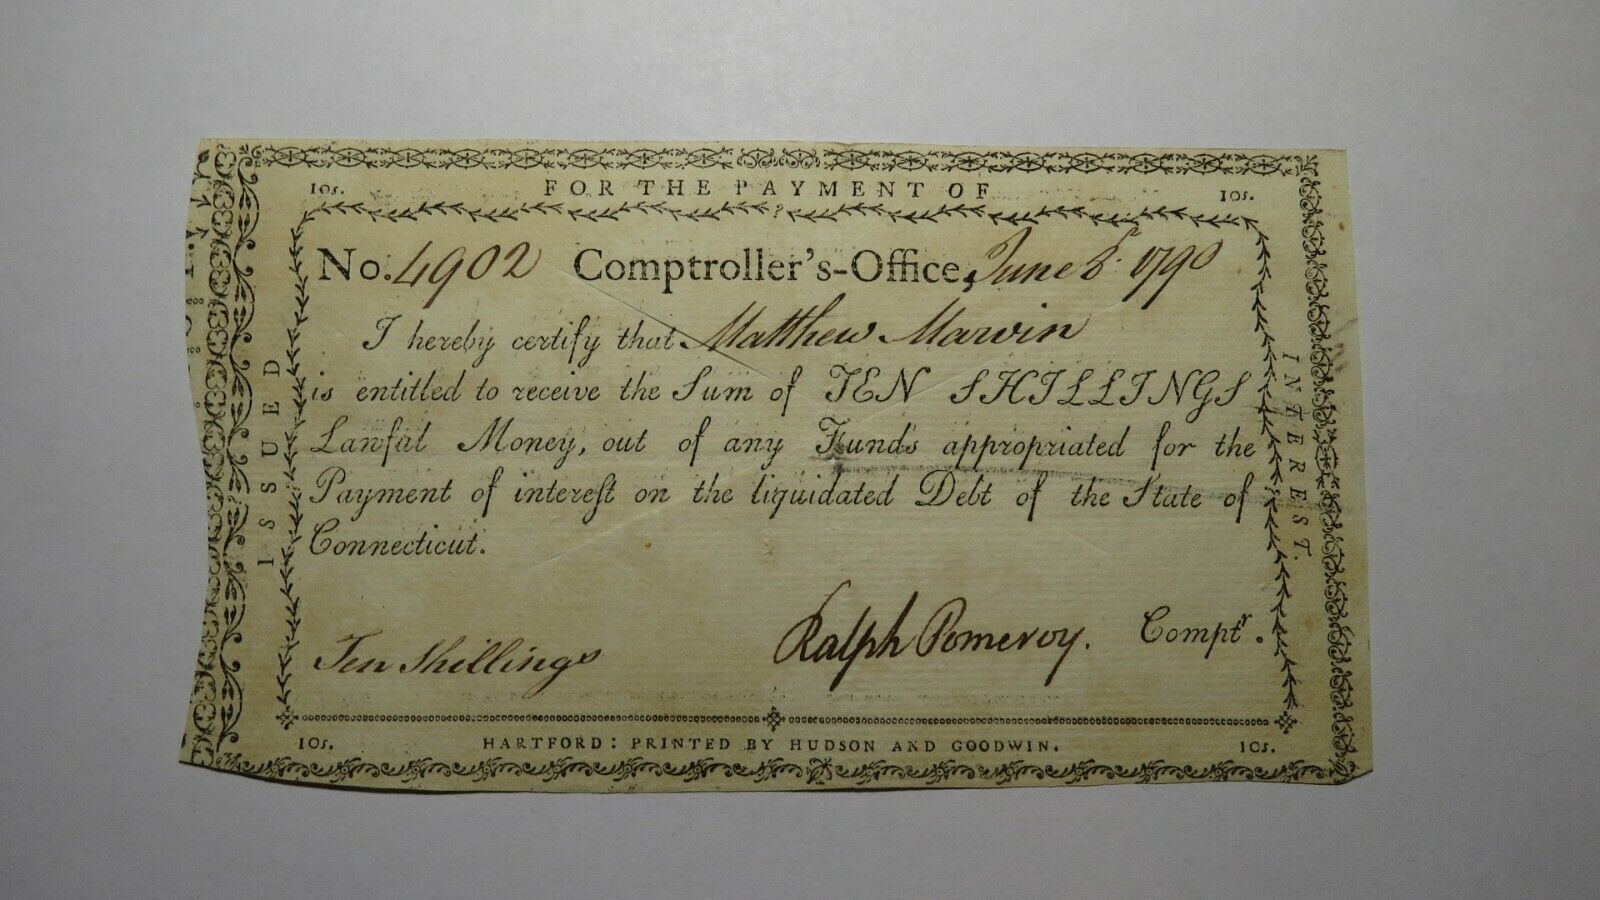 10s. FOR THE PAYMENT OF 10s.
No. 4902 Comptroller's-Office, June 8th 1790
I hereby certify that Matthew Marvin
is entitled to receive the Sum of TEN SHILLINGS
Lawful Money, out of any Funds appropriated for the
Payment of interest on the liquidated Debt of the State of
Connecticut.
Ten Shillings Ralph Pomeroy. Comptr.
10s. HARTFORD: PRINTED BY HUDSON AND GOODWIN. 10s.
ISSUED
INTEREST.